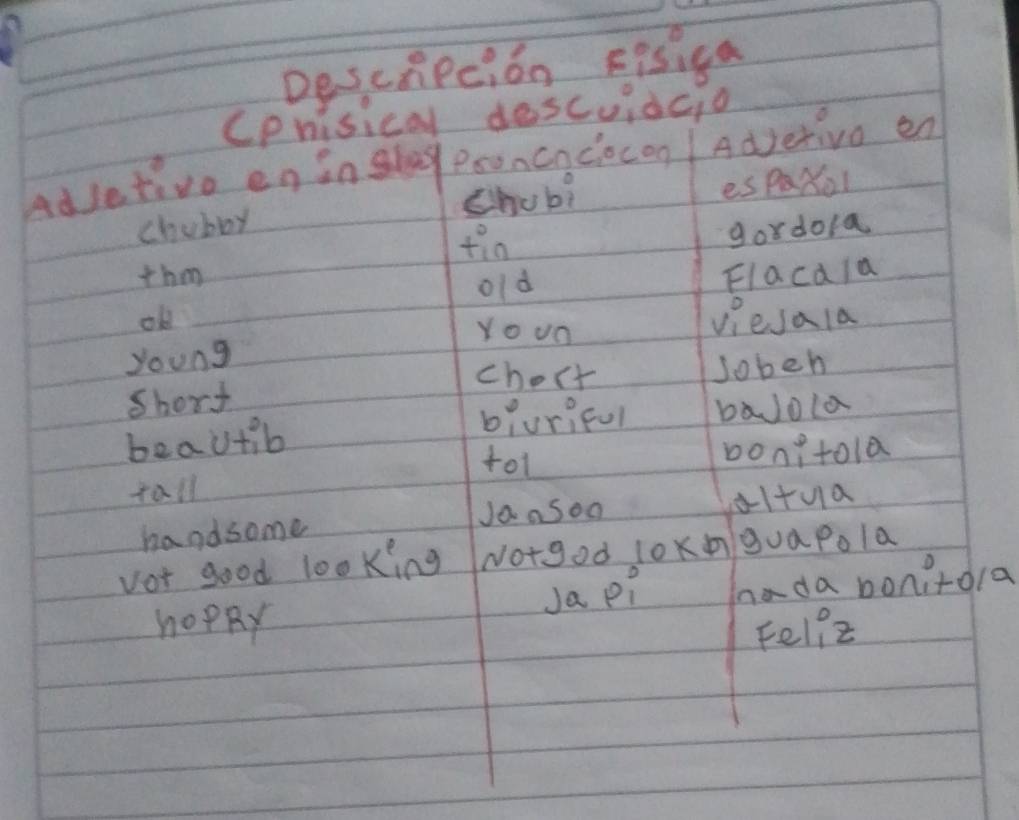 Descripción Fisica
(Phisical descuidcio
Adjetivo en ingles Prooncnciocon Adjetivo en
español
chubby chubi gordo/a
thin tin Flacala
old old viejala
young youn Joben
Short chort bajola
beautib biuriful bonitola
tall tol altula
handsome Janson guapola
Not good looking Notgod lokin nada bonitola
hoppy Japi Feliz